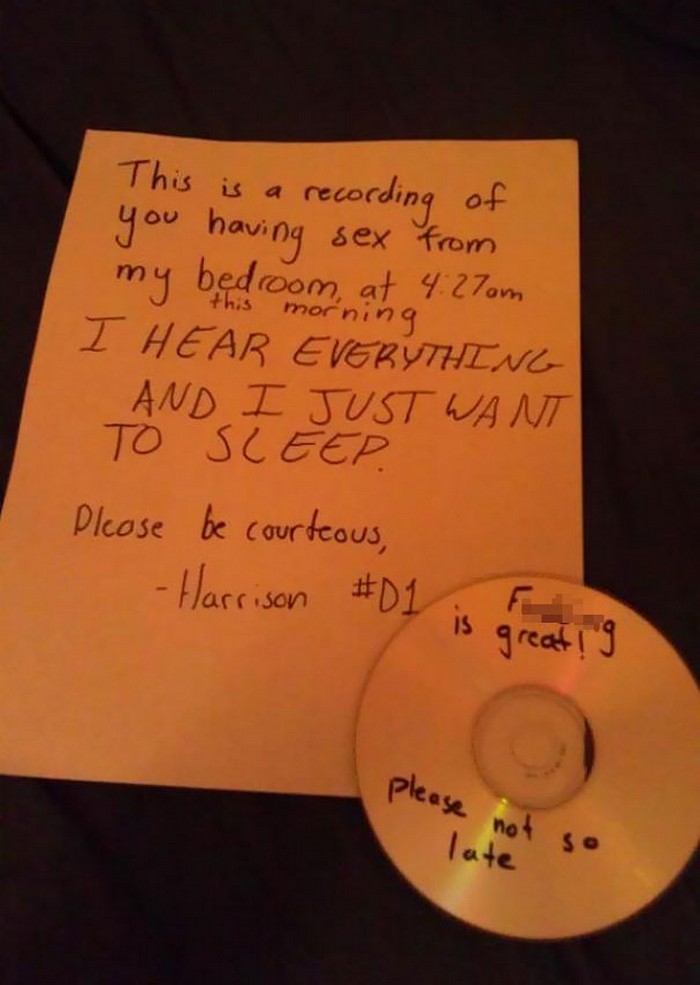 This is a recording of
you having sex from
my bedroom, at 4:27am
this morning
I HEAR EVERYTHING
AND I JUST WANT
TO SLEEP.
Please be courteous,
-Harrison #D1
is great!
please not so
late